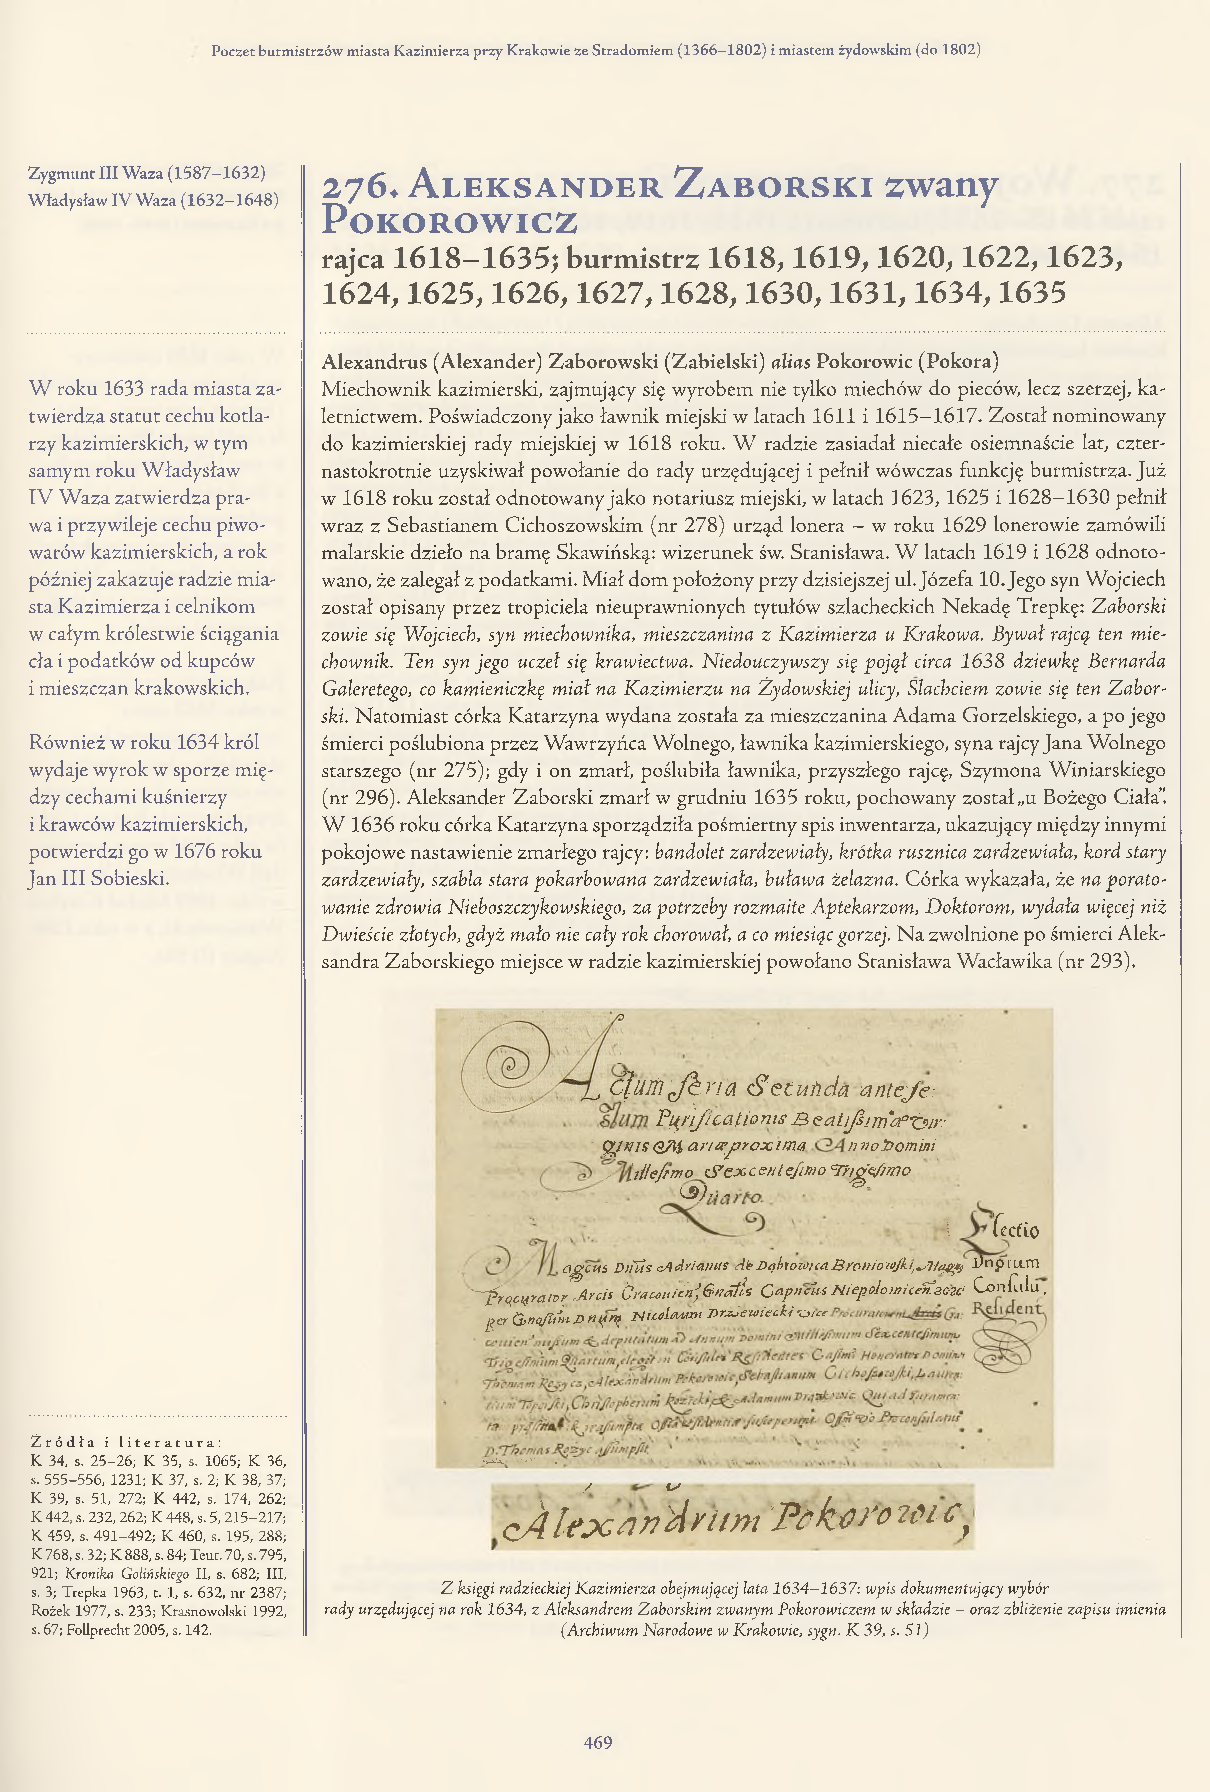 Poczet burmistrzów miasta Kazimierza przy Krakowie ze Stradomiem (1366–1802) i miastem żydowskim (do 1802)
Zygmunt III Waza (1587–1632)
Władysław IV Waza (1632–1648)
W roku 1633 rada miasta za-
twierdza statut cechu kotla-
rzy kazimierskich, w tym
samym roku Władysław
IV Waza zatwierdza pra-
wa i przywileje cechu piwo-
warów kazimierskich, a rok
później zakazuje radzie mia-
sta Kazimierza i celnikom
w całym królestwie ściągania
cła i podatków od kupców
i mieszczan krakowskich.
Również w roku 1634 król
wydaje wyrok w sporze mię-
dzy cechami kuśnierzy
i krawców kazimierskich,
potwierdzi go w 1676 roku
Jan III Sobieski.
Źródła i literatura:
K 34, s. 25–26; K 35, s. 1065; K 36,
s. 555–556, 1231; K 37, s. 2; K 38, 37;
K 39, s. 51, 272; K 442, s. 174, 262;
K 442, s. 232, 262; K 448, s. 5, 215–217;
K 459, s. 491–492; K 460, s. 195, 288;
K 768, s. 32; K 888, s. 84; Teut. 70, s. 795,
921; Kronika Golińskiego II, s. 682; III,
s. 3; Trepka 1963, t. 1, s. 632, nr 2387;
Rożek 1977, s. 233; Krasnowolski 1992,
s. 67; Follprecht 2005, s. 142.
276. Aleksander Zaborski zwany
Pokorowicz
rajca 1618–1635; burmistrz 1618, 1619, 1620, 1622, 1623,
1624, 1625, 1626, 1627, 1628, 1630, 1631, 1634, 1635
Alexandrus (Alexander) Zaborowski (Zabielski) alias Pokorowic (Pokora)
Miechownik kazimierski, zajmujący się wyrobem nie tylko miechów do pieców, lecz szerzej, ka-
letnictwem. Poświadczony jako ławnik miejski w latach 1611 i 1615–1617. Został nominowany
do kazimierskiej rady miejskiej w 1618 roku. W radzie zasiadał niecałe osiemnaście lat, czter-
nastokrotnie uzyskiwał powołanie do rady urzędującej i pełnił wówczas funkcję burmistrza. Już
w 1618 roku został odnotowany jako notariusz miejski, w latach 1623, 1625 i 1628–1630 pełnił
wraz z Sebastianem Cichoszowskim (nr 278) urząd lonera – w roku 1629 lonerowie zamówili
malarskie dzieło na bramę Skawińską: wizerunek św. Stanisława. W latach 1619 i 1628 odnoto-
wano, że zalegał z podatkami. Miał dom położony przy dzisiejszej ul. Józefa 10. Jego syn Wojciech
został opisany przez tropiciela nieuprawnionych tytułów szlacheckich Nekadę Trepkę: Zaborski
zowie się Wojciech, syn miechownika, mieszczanina z Kazimierza u Krakowa. Bywał rajcą ten mie-
chownik. Ten syn jego uczeł się krawiectwa. Niedouczywszy się pojął circa 1638 dziewkę Bernarda
Galeretego, co kamieniczkę miał na Kazimierzu na Żydowskiej ulicy, Ślachciem zowie się ten Zabor-
ski. Natomiast córka Katarzyna wydana została za mieszczanina Adama Gorzelskiego, a po jego
śmierci poślubiona przez Wawrzyńca Wolnego, ławnika kazimierskiego, syna rajcy Jana Wolnego
starszego (nr 275); gdy i on zmarł, poślubiła ławnika, przyszłego rajcę, Szymona Winiarskiego
(nr 296). Aleksander Zaborski zmarł w grudniu 1635 roku, pochowany został „u Bożego Ciała”.
W 1636 roku córka Katarzyna sporządziła pośmiertny spis inwentarza, ukazujący między innymi
pokojowe nastawienie zmarłego rajcy: bandolet zardzewiały, krótka rusznica zardzewiała, kord stary
zardzewiały, szabla stara pokarbowana zardzewiała, buława żelazna. Córka wykazała, że na porato-
wanie zdrowia Nieboszczykowskiego, za potrzeby rozmaite Aptekarzom, Doktorom, wydała więcej niż
Dwieście złotych, gdyż mało nie cały rok chorował, a co miesiąc gorzej. Na zwolnione po śmierci Alek-
sandra Zaborskiego miejsce w radzie kazimierskiej powołano Stanisława Wacławika (nr 293).
Actum feria Secunda ante fe-
stum Purificationis Beatissimae Vir-
ginis Mariae proxima Anno Domini
Millesimo Sexcentesimo Trigesimo
Quarto.
Electio
Dnorum
Consulu
Resident
Alexandrum Pokorowic,
Z księgi radzieckiej Kazimierza obejmującej lata 1634–1637: wpis dokumentujący wybór
rady urzędującej na rok 1634, z Aleksandrem Zaborskim zwanym Pokorowiczem w składzie – oraz zbliżenie zapisu imienia
(Archiwum Narodowe w Krakowie, sygn. K 39, s. 51)
469